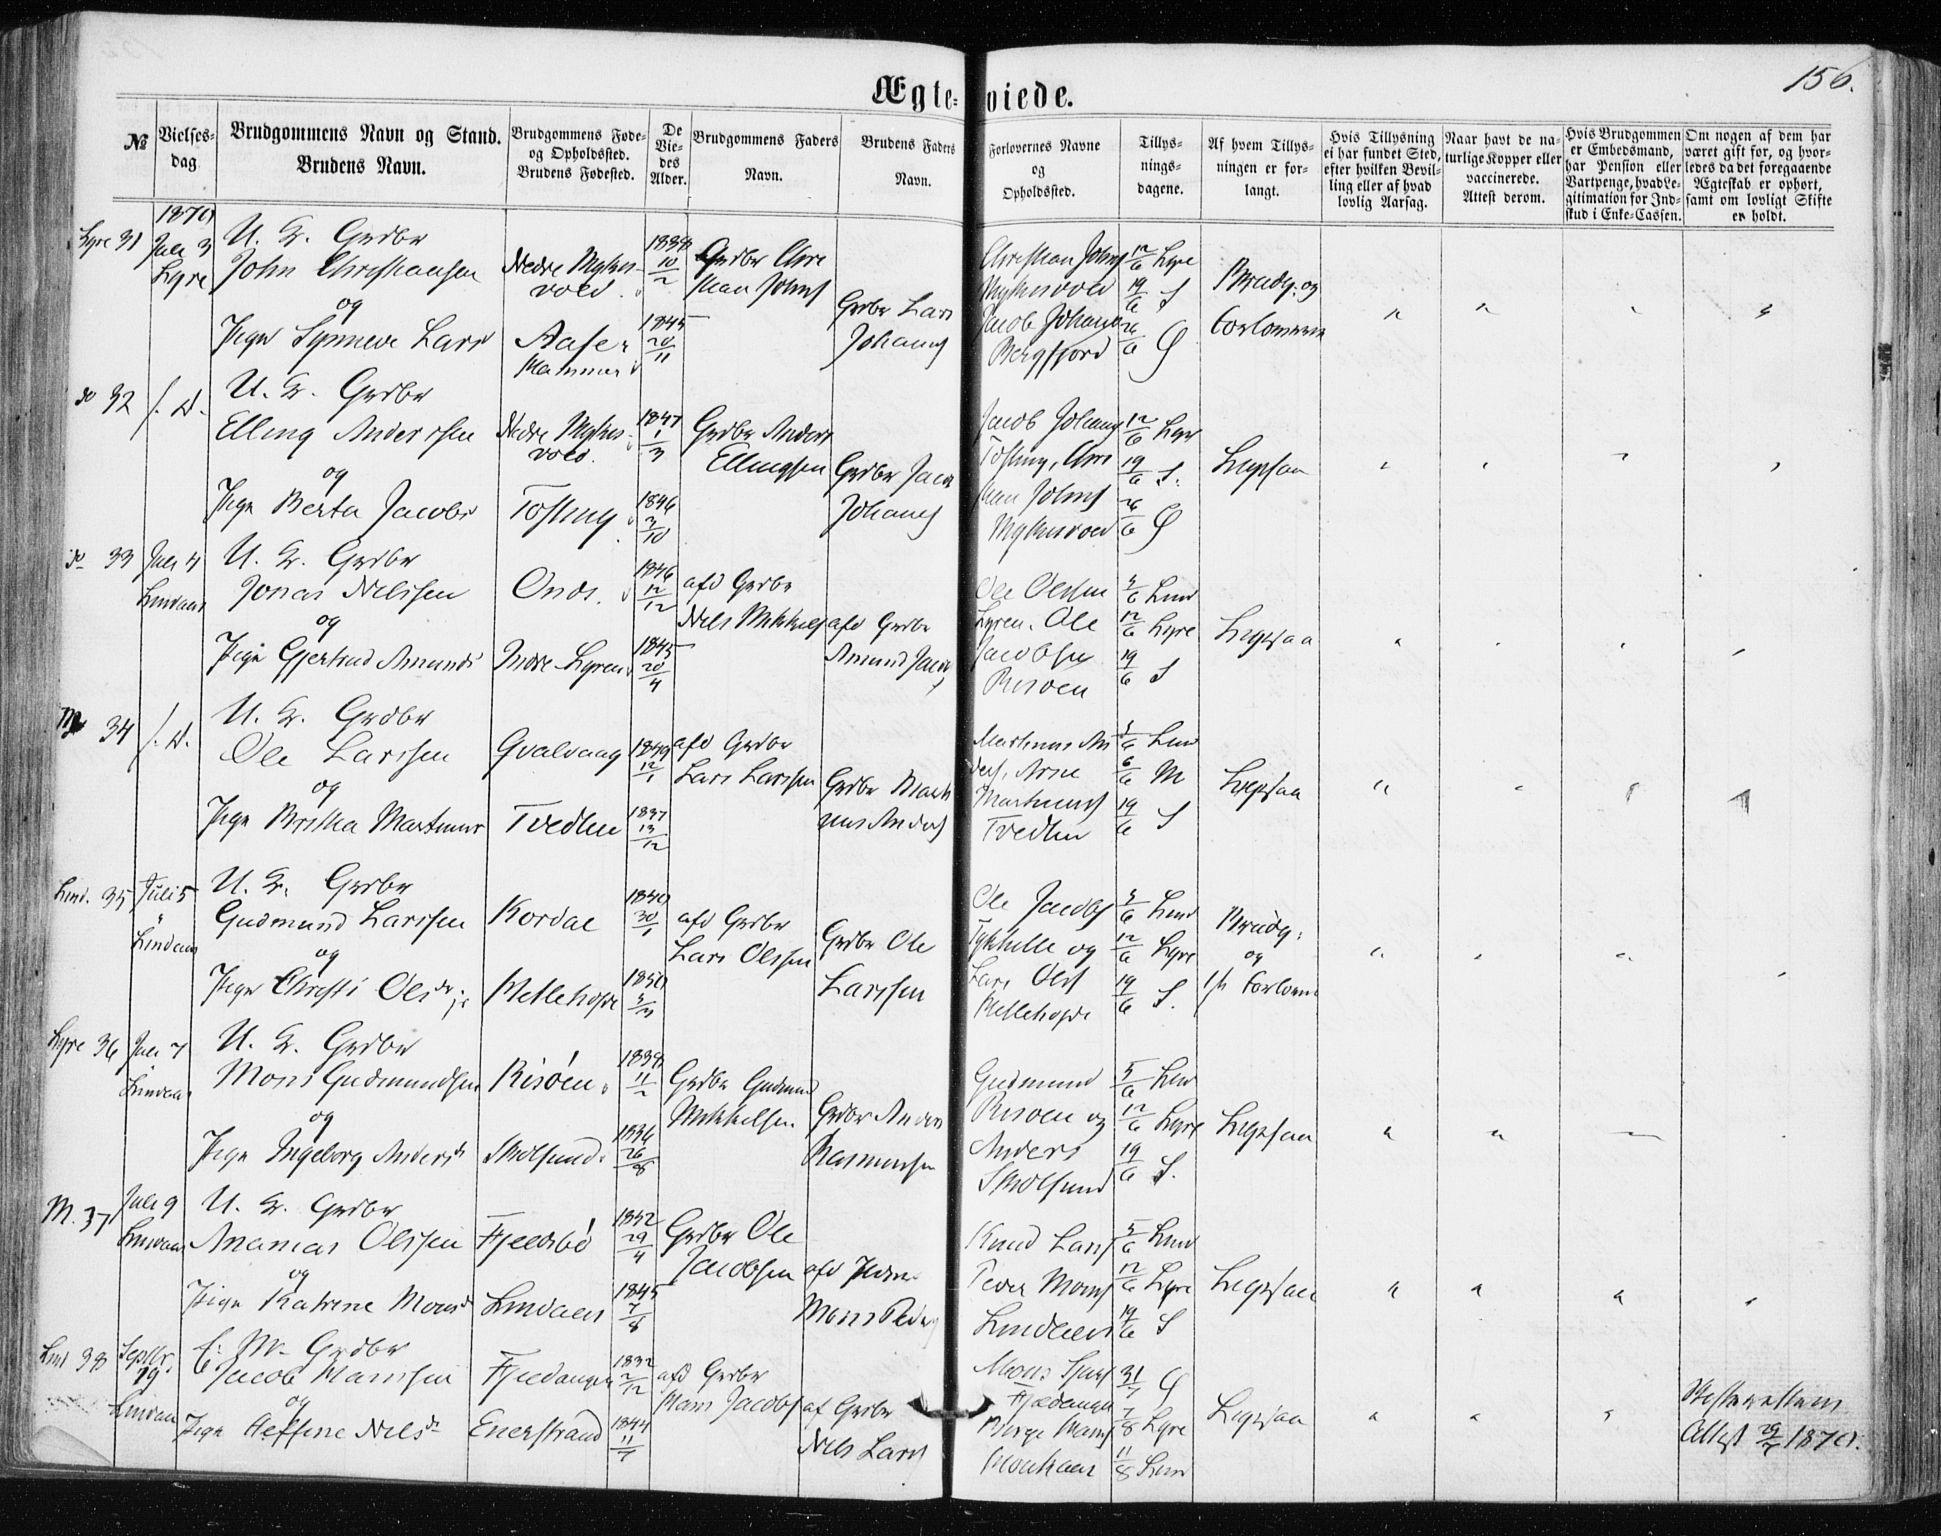 156.
Ægte-viede.
№
Vielses-
dag
Brudgommens Navn og Stand.
Brudens Navn.
Brudgommens Føde-
og Opholdssted.
Brudens Fødested.
De
Vie-
des
Alder.
Brudgommens Faders
Navn.
Brudens Faders
Navn.
Forlovernes Navne
og
Opholdssted.
Tillys-
nings-
dagene.
Af hvem Tillys-
ningen er for-
langt.
Hvis Tillysning
ei har fundet Sted,
efter hvilken Bevil-
ling eller af hvad
lovlig Aarsag.
Naar havt de na-
turlige Kopper eller
vaccinerede.
Attest derom.
Hvis Brudgommen
er Embedsmand,
har Pension eller
Vartpenge, hvad Le-
gitimation for Ind-
skud i Enke-Cassen.
Om nogen af dem har
været gift før, og hvor-
ledes da det foregaaende
Ægteskab er ophørt,
samt om lovligt Skifte
er holdt.
1870
Lyre 31
Juli 3
Lyre
U. K. Grdbr
John Christiansen
og
Pige Synneve Lars
Nedre Mykes-
vold
Aase
1838
10/2
1845
20/11
Grdbr Chri
stian Johns
Grdbr Lars
Johans
Christian Johns
Mykesvold
Jacob Johans
Bergfjord
12/6 Lyre
19/6 S
26/6 G
Brudg. og
Forloverne
do 32
s. D.
U. K. Grdbr
Elling Andersen
og
Pige Berta Jacobs
Nedre Mykes-
vold.
Tosting
1847
1/3
1846
3/10
Grdbr Anders
Ellingsen
Grdbr Jacob
Johans
Jacob Johans
Tosting, Chri
stian Johns
Mykesvold
12/6 Lyre
19/6 S.
26/6 G
Ligesaa
do 33
Juli 4
Lindaas
U. K. Grdbr
Jonas Nilssen
og
Pige Gjertrud Amunds
Onds.
Indre Lyren
1846
12/12
1845
20/4
afd Grdbr
Nils Mikkels
afd Grdbr
Amund Jacobs
Ole Olssen
Lyren. Ole
Jacobsen
Risøen
5/6 Lind
12/6 Lyre
19/6 S
Ligesaa
34
s. D.
U. K. Grdbr
Ole Larssen
og
Pige Britha Martinus
Gvalvaag
Tvedten
1849
12/1
1837
13/12
afd Grdbr
Lars Larssen
Grdbr Mart
inus Anders
Martinus An
ders, Arne
Martinus
Tvedten
5/6 Lind
6/6 M
19/6 S
Ligesaa
Lind. 35
Juli 5
Lindaas
U. K. Grdbr
Gudmund Larssen
og
Pige Christi Olsdr
Kordal
Mellehope
1840
30/1
1850
afd Grdbr
Lars Olssen
Grdbr Ole
Larssen
Ole Jacobs
og
Lars Ols
Mellehope
5/6 Lind
12/6 Lyre
19/6 S.
Brudg:
og
Lyre 36
Juli 7
Lindaas
U. K. Grdbr
Mons Gudmundsen
og
Pige Ingeborg Anders
Risøen.
Skolsund.
1838
11/2
1836
26/8
Grdbr Gudmund
Mikkelsen.
Grdbr Anders
Rasmussen
Gudmund
Risøen og
Anders
Skolsund
5/6 Lind
12/6 Lyre
19/6 S.
Ligesaa
M. 37
Juli 9
Lindaas
U. K. Grdbr
Ananias Olssen
og
Pige Katrine Mons
Fjeldsbø
Lindaas
1842
29/4
1845
7/8
Grdbr Ole
Jacobsen
afd
Mons Peders
Knud Lars
Peder Mons
Lindaas
5/6 Lind
12/6 Lyre
19/6 S
Ligesaa
Lind 38
Septbr.
19
Lindaas
E. M. Grdbr
Jacob Monssen
og
Pige Nilsdr
Fjedanger
Enerstrand
1832
2/12
1844
11/7
afd Grdbr
Mons Jacobs
af Grdbr
Nils Lars
Mons
Fjedanger
Børge Mons
31/7 G
7/8 Lyre
11/8 Lind
Ligesaa
Skifterettens
Attest 29/7 1870.